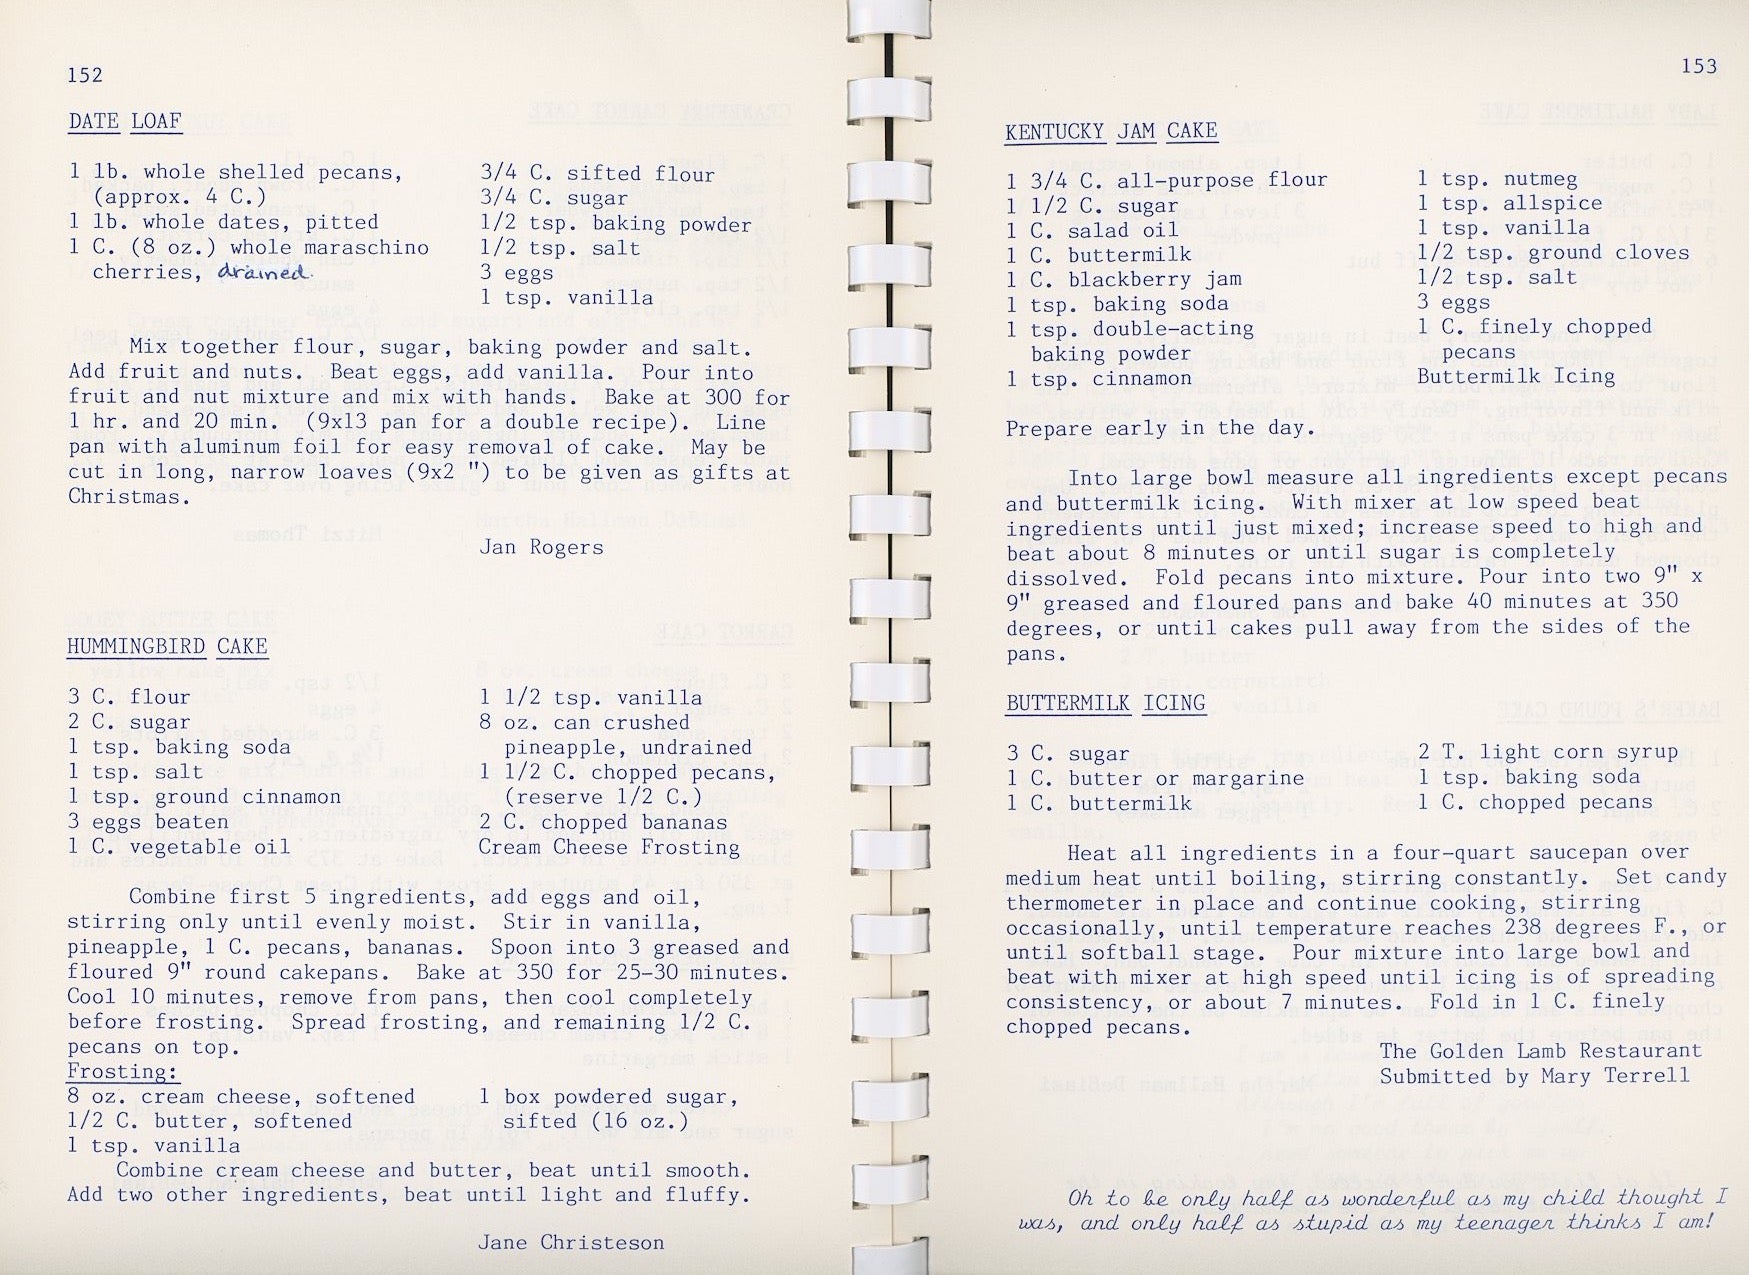 152
DATE LOAF
1 lb. whole shelled pecans,
(approx. 4 C.)
1 lb. whole dates, pitted
1 C. (8 oz.) whole maraschino
cherries, drained.
3/4 C. sifted flour
3/4 C. sugar
1/2 tsp. baking powder
1/2 tsp. salt
3 eggs
1 tsp. vanilla
Mix together flour, sugar, baking powder and salt.
Add fruit and nuts. Beat eggs, add vanilla. Pour into
fruit and nut mixture and mix with hands. Bake at 300 for
1 hr. and 20 min. (9x13 pan for a double recipe). Line
pan with aluminum foil for easy removal of cake. May be
cut in long, narrow loaves (9x2 ") to be given as gifts at
Christmas.
Jan Rogers
HUMMINGBIRD CAKE
3 C. flour
2 C. sugar
1 tsp. baking soda
1 tsp. salt
1 tsp. ground cinnamon
3 eggs beaten
1 C. vegetable oil
1 1/2 tsp. vanilla
8 oz. can crushed
pineapple, undrained
1 1/2 C. chopped pecans,
(reserve 1/2 C.)
2 C. chopped bananas
Cream Cheese Frosting
Combine first 5 ingredients, add eggs and oil,
stirring only until evenly moist. Stir in vanilla,
pineapple, 1 C. pecans, bananas. Spoon into 3 greased and
floured 9" round cakepans. Bake at 350 for 25-30 minutes.
Cool 10 minutes, remove from pans, then cool completely
before frosting. Spread frosting, and remaining 1/2 C.
pecans on top.
Frosting:
8 oz. cream cheese, softened
1/2 C. butter, softened
1 tsp. vanilla
1 box powdered sugar,
sifted (16 oz.)
Combine cream cheese and butter, beat until smooth.
Add two other ingredients, beat until light and fluffy.
Jane Christeson
153
KENTUCKY JAM CAKE
1 3/4 C. all-purpose flour
1 1/2 C. sugar
1 C. salad oil
1 C. buttermilk
1 C. blackberry jam
1 tsp. baking soda
1 tsp. double-acting
baking powder
1 tsp. cinnamon
1 tsp. nutmeg
1 tsp. allspice
1 tsp. vanilla
1/2 tsp. ground cloves
1/2 tsp. salt
3 eggs
1 C. finely chopped
pecans
Buttermilk Icing
Prepare early in the day.
Into large bowl measure all ingredients except pecans
and buttermilk icing. With mixer at low speed beat
ingredients until just mixed; increase speed to high and
beat about 8 minutes or until sugar is completely
dissolved. Fold pecans into mixture. Pour into two 9" x
9" greased and floured pans and bake 40 minutes at 350
degrees, or until cakes pull away from the sides of the
pans.
BUTTERMILK ICING
3 C. sugar
1 C. butter or margarine
1 C. buttermilk
2 T. light corn syrup
1 tsp. baking soda
1 C. chopped pecans
Heat all ingredients in a four-quart saucepan over
medium heat until boiling, stirring constantly. Set candy
thermometer in place and continue cooking, stirring
occasionally, until temperature reaches 238 degrees F., or
until softball stage. Pour mixture into large bowl and
beat with mixer at high speed until icing is of spreading
consistency, or about 7 minutes. Fold in 1 C. finely
chopped pecans.
The Golden Lamb Restaurant
Submitted by Mary Terrell
Oh to be only half as wonderful as my child thought I
was, and only half as stupid as my teenager thinks I am!